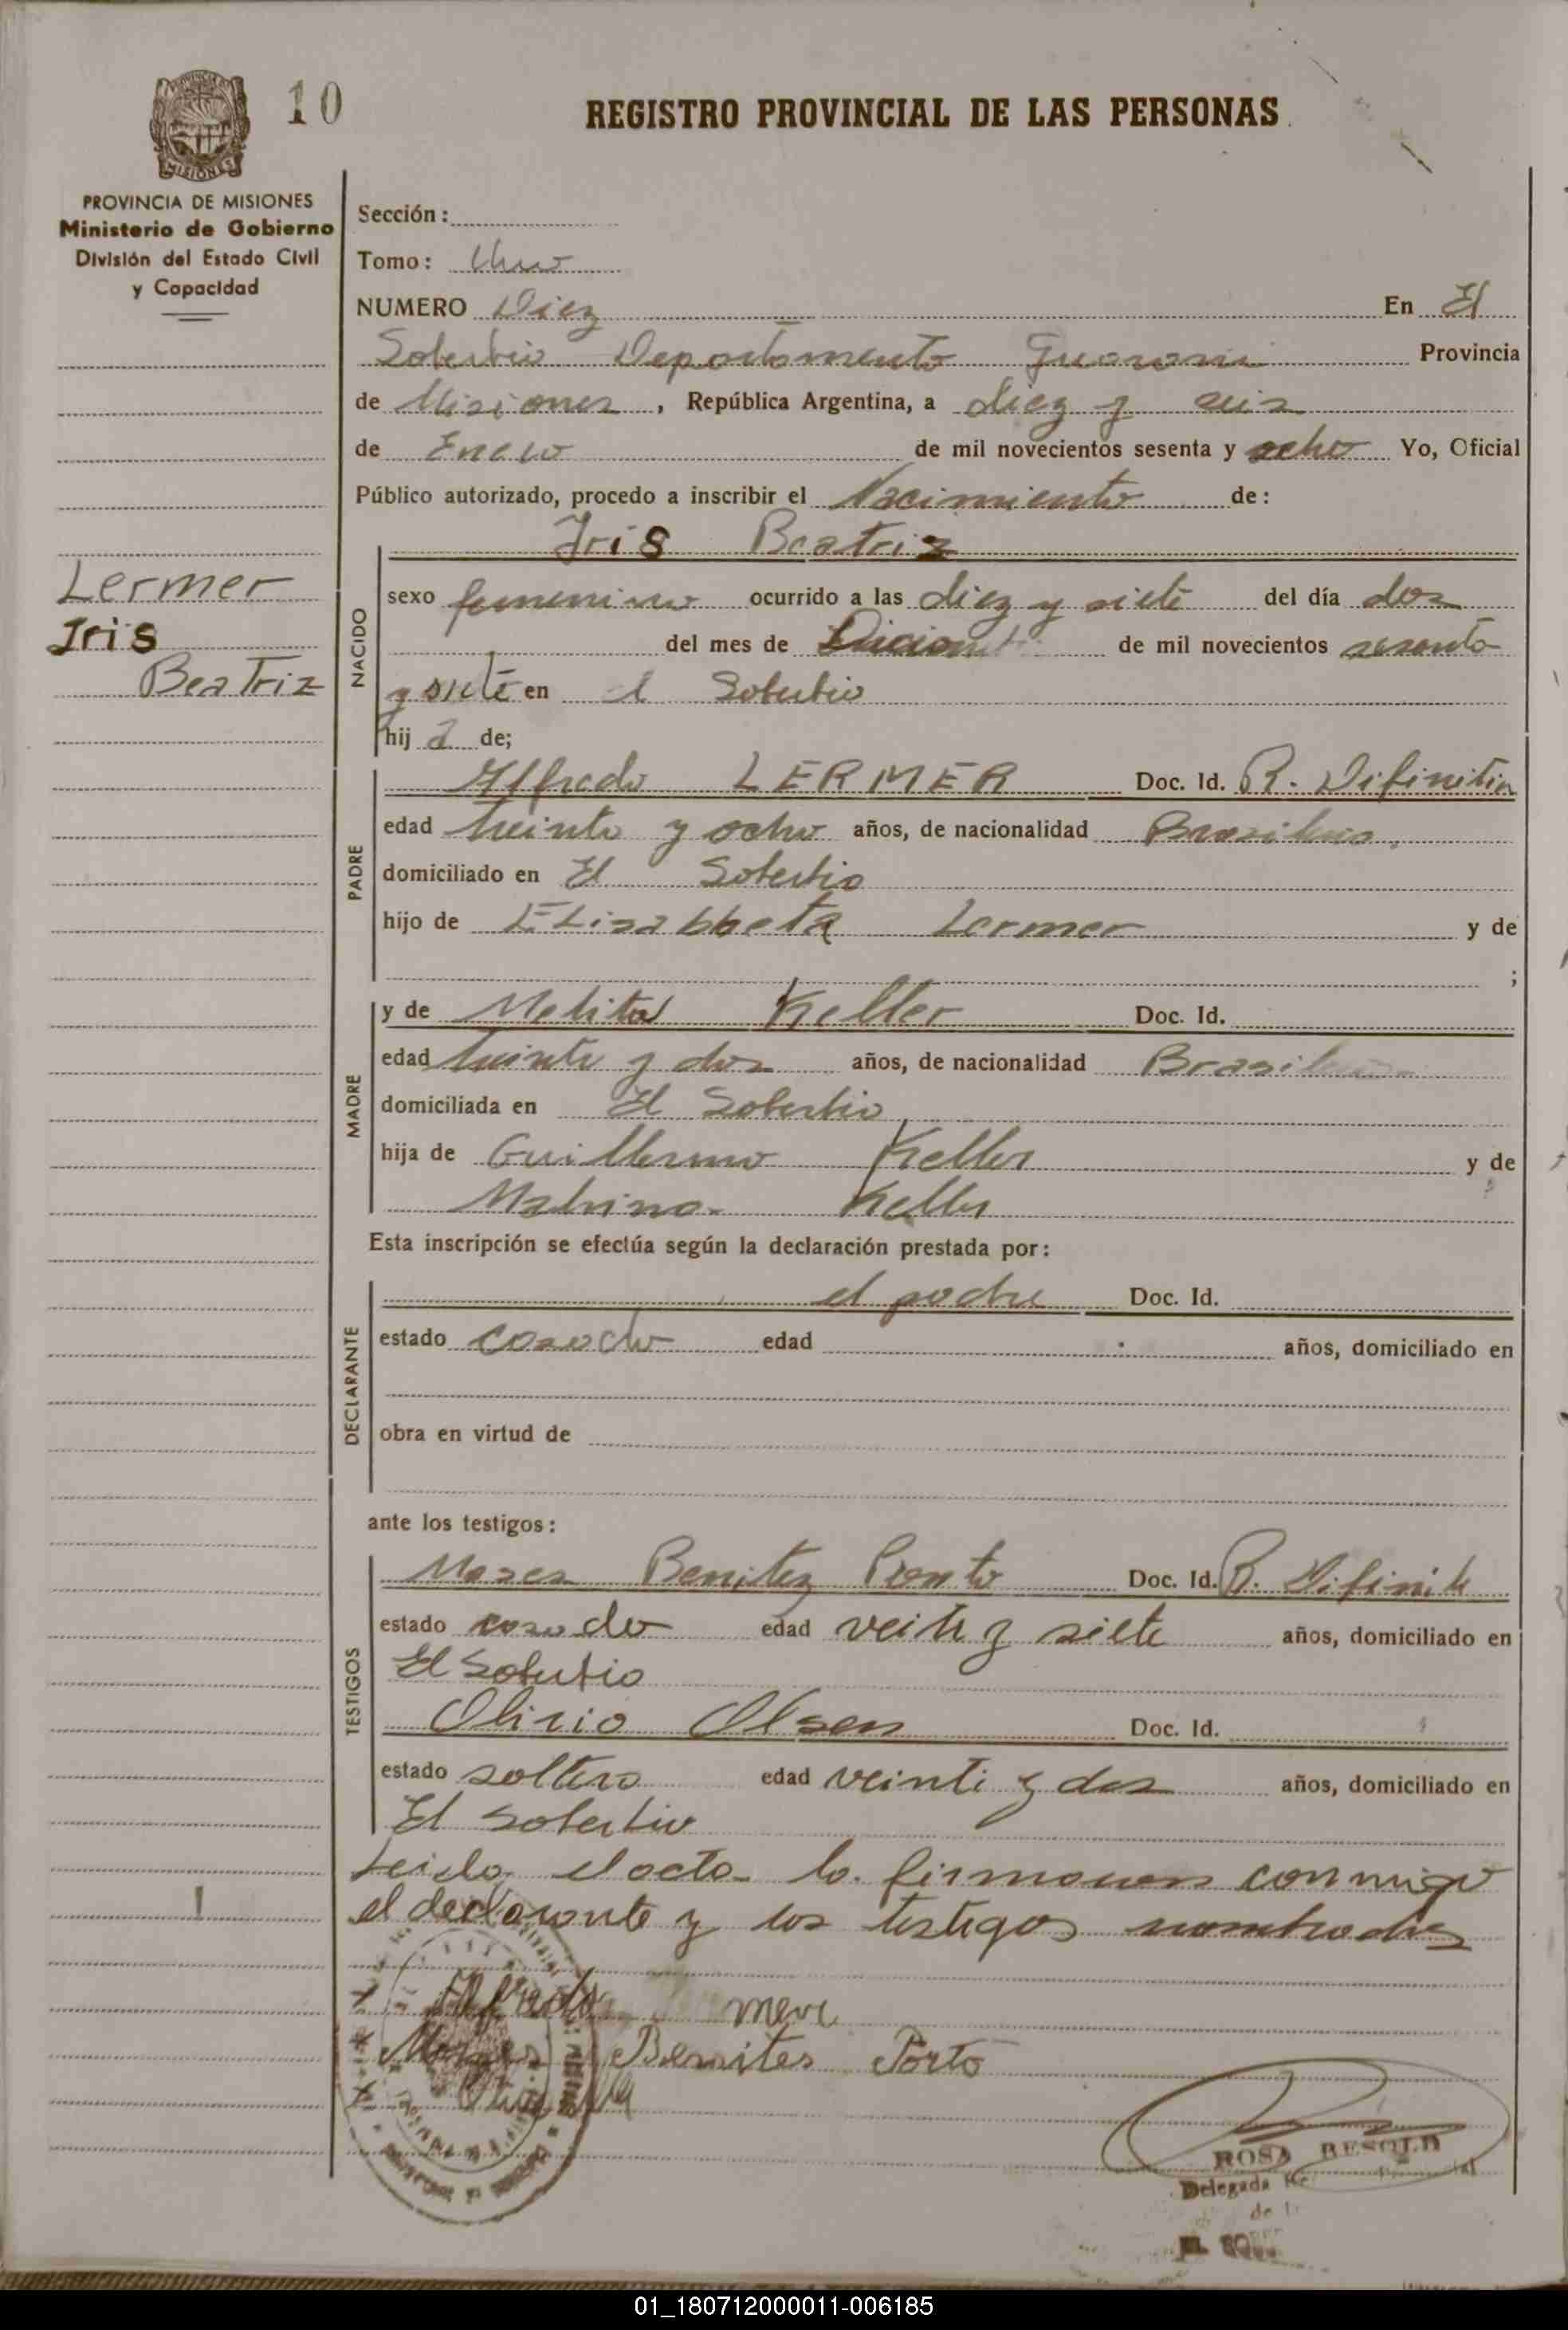 10
REGISTRO PROVINCIAL DE LAS PERSONAS
MISIONES
PROVINCIA DE MISIONES
Ministerio de Gobierno
División del Estado Civil
y Capacidad
Sección:
Tomo: Uno
NUMERO Diez En El
Soberbio Departamento Guarani Provincia
de Misiones, República Argentina, a diez y seis
de Enero de mil novecientos sesenta y ocho Yo, Oficial
Público autorizado, procedo a inscribir el Nacimiento de:
Lermer
Iris
Beatriz
NACIDO
Iris Beatriz
sexo femenino ocurrido a las diez y siete del día dos
del mes de de mil novecientos sesenta
y siete en el Soberbio
hija de;
PADRE
Alfredo LERMER Doc. Id. R. Difinitiva
edad treinta y ocho años, de nacionalidad Brasileno
domiciliado en El Soberbio
hijo de Lermer y de
;
MADRE
y de Melita Keller Doc. Id.
edad treinta y dos años, de nacionalidad
domiciliada en El Soberbio
hija de Guillermo Keller y de
Malvina Keller
Esta inscripción se efectúa según la declaración prestada por:
DECLARANTE
el padre Doc. Id.
estado casado edad años, domiciliado en
obra en virtud de
ante los testigos:
TESTIGOS
Benitez Doc. Id. R.
estado casado edad veite y siete años, domiciliado en
El Soberbio
Olirio Olsen Doc. Id.
estado soltero edad veinti y dos años, domiciliado en
El Soberbio
Leida el acta la firmaron conmigo
el declarante y los testigos nombrados
Alfredo
Benites Porto
ROSA BESOLD
Delegada
01_180712000011-006185